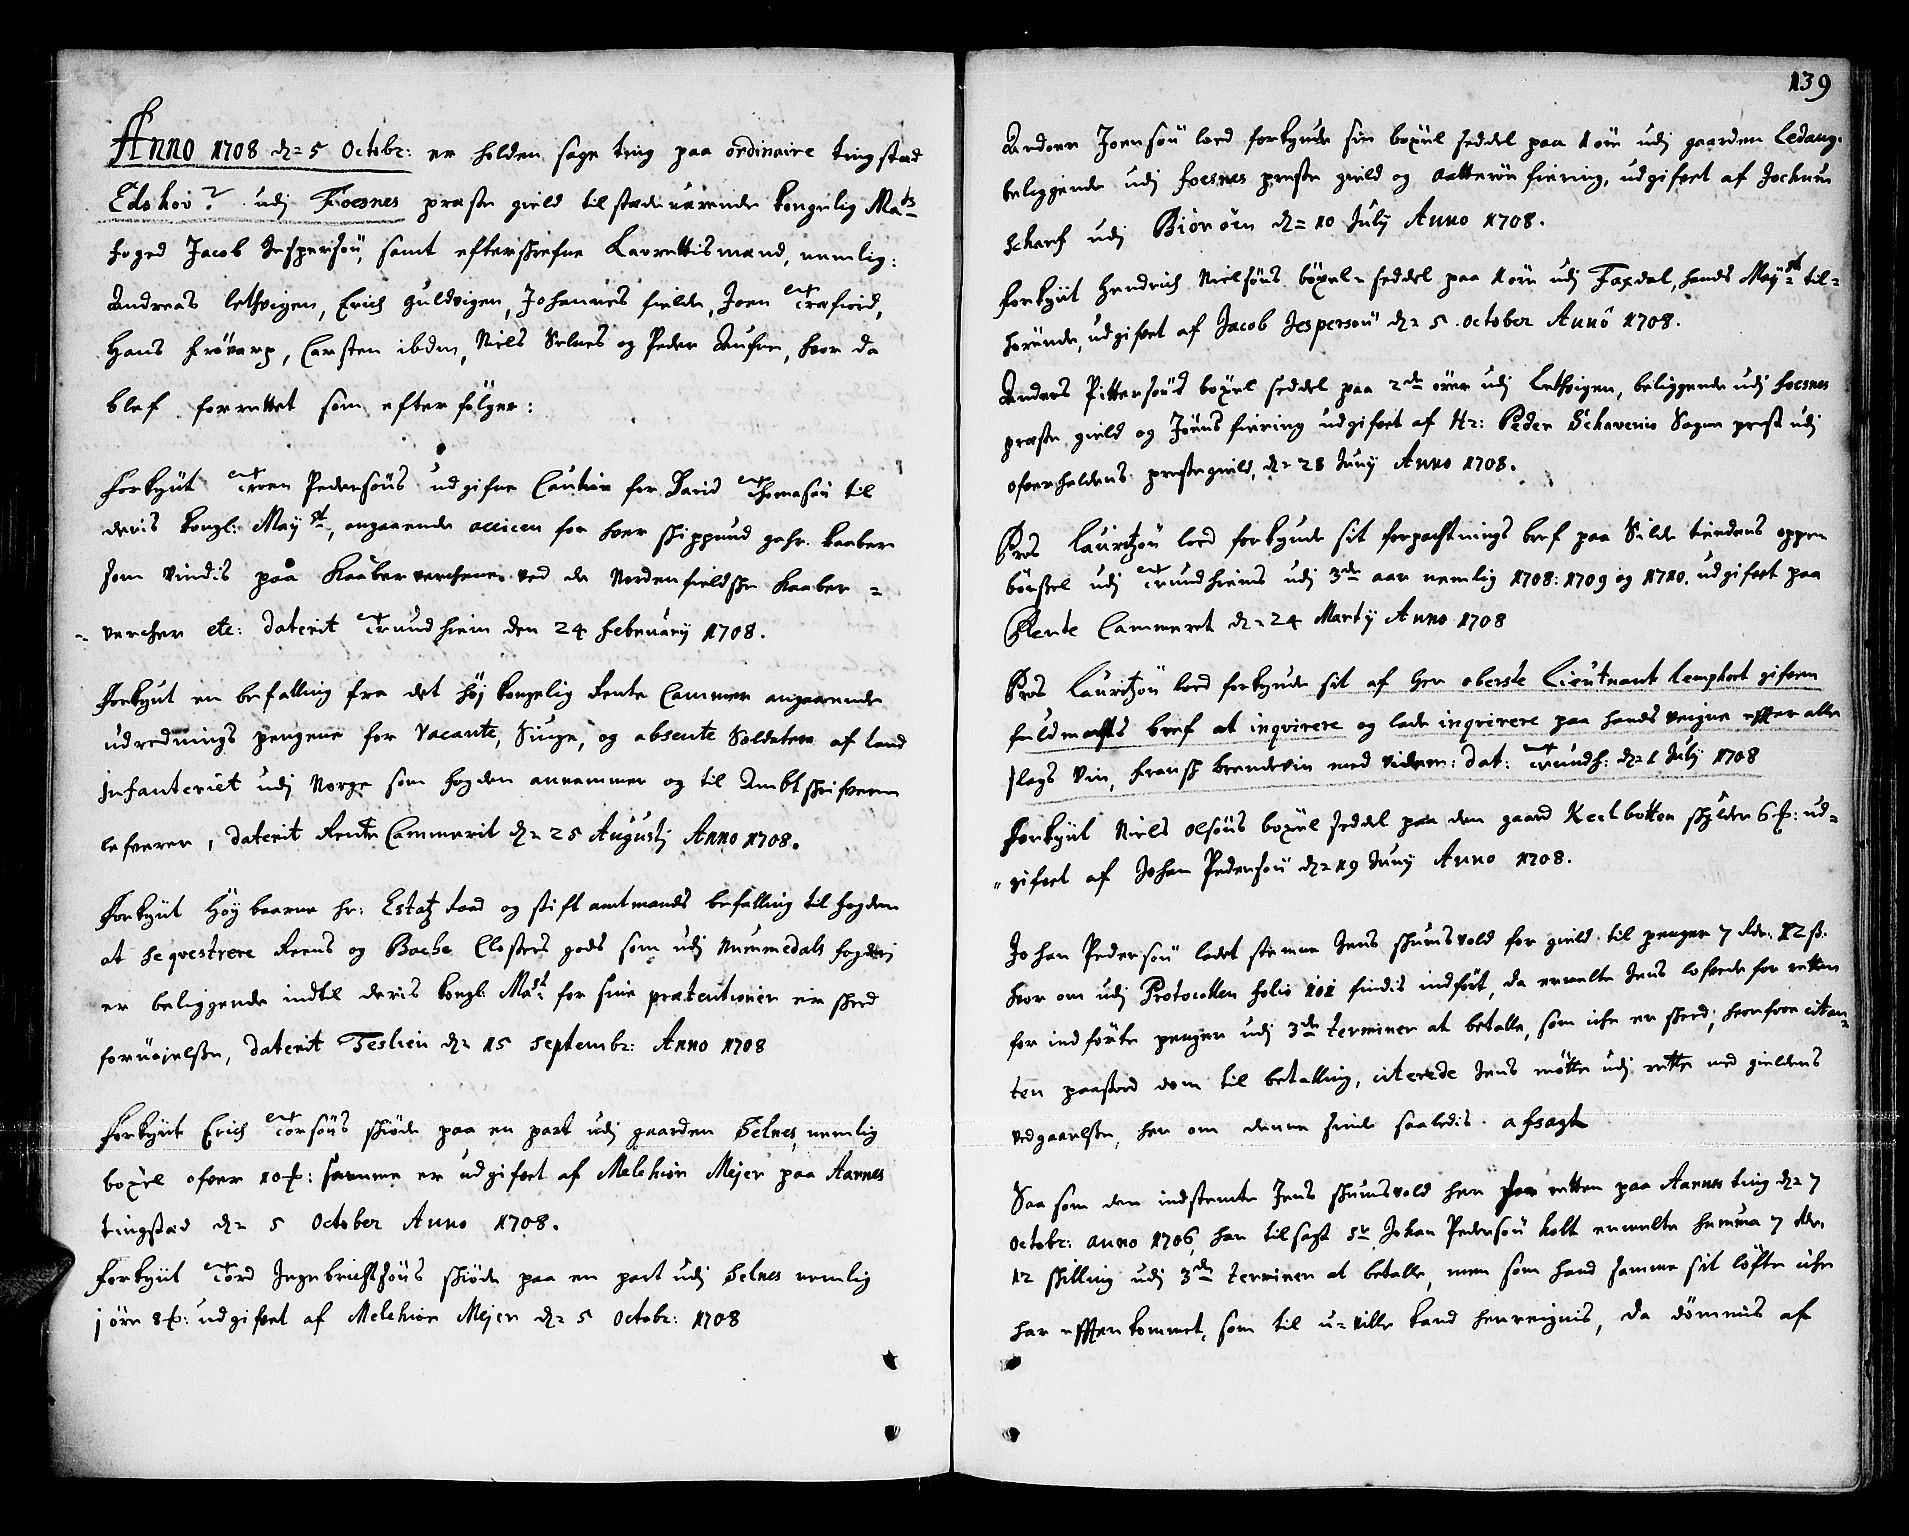 Anno 1708 d= 5 Octobr: er holden sage ting paa ordinaire tingstæd
Edshov? udj Foesnes præste gield tilstædeværende kongelig Ma:ts
foged Jacob Jespersøn, samt efterskrefne Laurettismænd, nemlig:
Andreas lethvigen, Erich guldvigen, Johannes fielde, Joen Trefiord,
Hans frövarp, Carsten ibdm, Niels Selnes og Peder Aufne, hvor da
blef forrettet som efterfölger:
forkyüt Troen Pedersöns udgifne Caution for David Thomasön til
deris kongl: May:st, angaaende accicen for hver skippund gahr kaaber
som vindis paa Kaaberverchene ved de Nordenfieldske kaaber =
vercher etc: daterit Trundhiem den 24 february 1708.
Forkyut en befalling fra det höj kongelig Rente Cammer angaaende
udrednings pengene for vacante, siuge, og absente Soldater af land
infanteriet udj Norge som fogden annammer og til Ambtskrifveren
lefverer, daterit Rente Cammerit d= 25 Augustj Anno 1708.
Forkyüt Höybaarne hr: Estatz raad og stiftamtmands befalling til fogden
at seqvestrere Reens og Bache Closters gods som udj Nummedals fogderj
er beliggende indtil deris kongl: Ma:st for sine prætentioner er skeed
fornöjelse, daterit Teslien d= 15 Septembr: Anno 1708
forkyüt Erich Torsöns skiöde paa en part udj gaarden Selnes, nemlig
böxel ofver 10 #: samme er udgifvet af Melchior Mejer paa Aarnes
tingstæd d= 5 October Anno 1708.
forkyüt Tord Ingebrichtsöns skiöde paa en part udj Selnes nemlig
j öre 8 #: udgifvet af Melchior Mejer d= 5 Octobr: 1708
139
Andors Joensön loed forkynde sin böxel seddel paa 1 öre udj gaarden Ledang,
beliggende udj foesnes preste gield og aatteröe fiering, udgifvet af Jochum
scharf udj Biörören d= 10 July Anno 1708.
forkyüt Hendrich Nielsöns böxel seddel paa 1 öre udj Faxdal, hands May:st til=
hörende, udgifvet af Jacob Jespersön d= 5 October Anno 1708.
Anders Pittersöns böxel seddel paa 2de örer udj Lethvigen, beliggende udj foesnes
preste gield og Jöens fiering udgifvet af Hr: Peder Schavenio Sogne prest udj
ofverhaldens prestegield, d= 28 Juny Anno 1708.
Pros Lauritzön loed forkynde sit forpachtnings bref paa Silde tiendens oppe
börssel udj Trundhiems udj 3de aar nemlig 1708: 1709 og 1710. udgifvet paa
Rente Cammeret d= 24 Martij Anno 1708
Pros Lauritzön loed forkynde sit af her oberste Lieutnant lemphort gifven
fuldmachts bref at inqvirere og lade inqvirere paa hands veigne effter alle
slags vin, fransk brendevin med videre: dat: Trundh: d= 1 July 1708
Forkyüt Niels Olsöns böxel seddel paa den gaard Keelbotten skylder 6 #: ud=
gifvet af Johan Pedersön d= 19 Juny Anno 1708.
Johan Pedersön ladet stemne Jens skiumsvold for gield til penger 7 Rdr: 12 ß.
hvor om udj Protocollen folio 101 findis indfört, da ermelte Jens lofvede for retten
for indförte penger udj 3de terminer at betalle, som iche er skeed; hvorfore citan=
ten paastod dom til betalling, citerede Jens mötte udj rette med gieldens
vedgaaelse, her om denne sinde saaledis afsagt
Saasom den indstemte Jens skiumsvold her for retten paa Aarnes ting d= 7
Octobr: anno 1706 har tilsagt Sr Johan Pedersön holt ermelte summa 7 Rdr.
12 skilling udj 3de terminer at betalle, men som hand samme sit löfte iche
har effterkommet, som til u=ville kand henreignis, da dömmis af